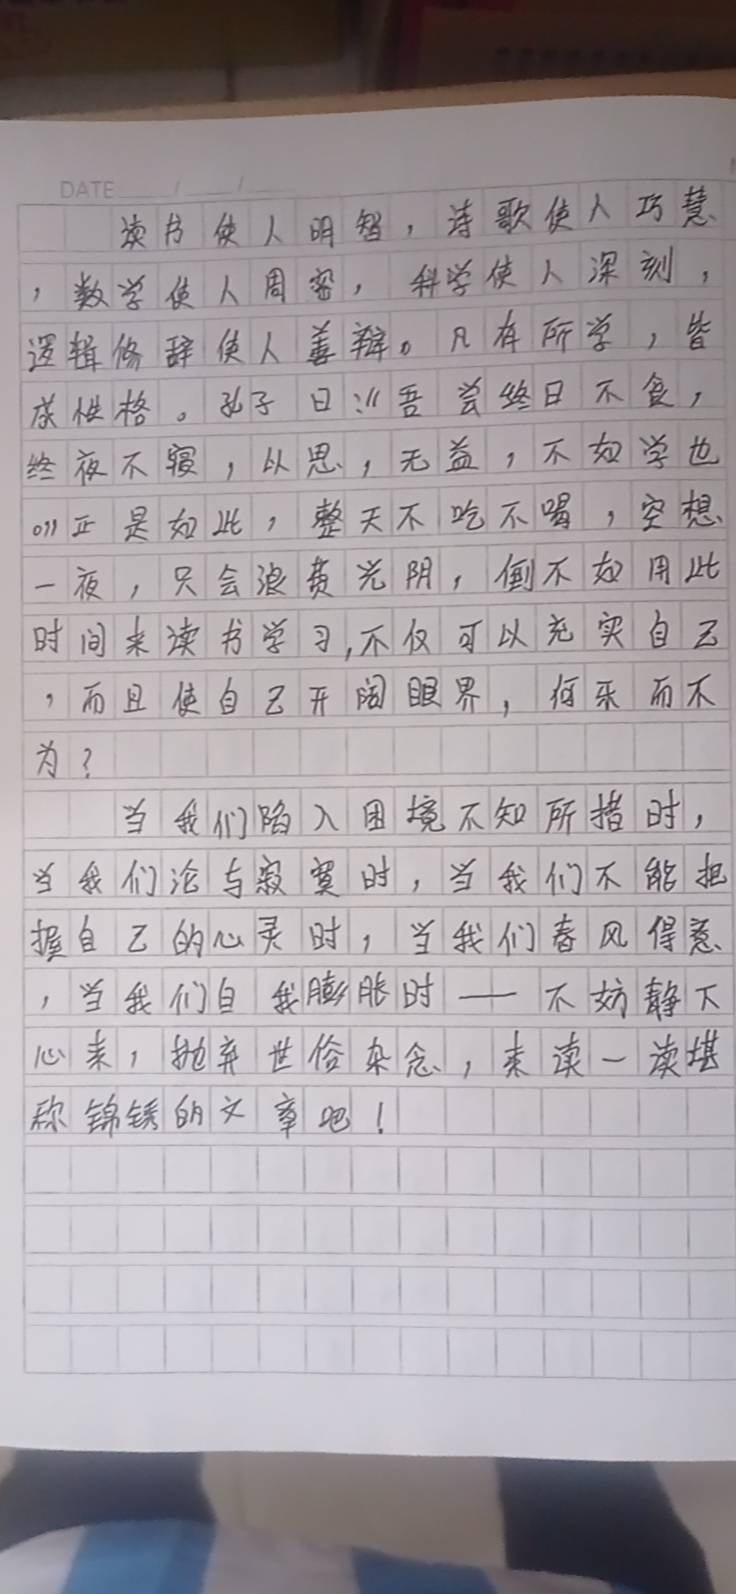 DATE
读书使人明智，诗歌使人巧慧
，数学使人周密，科学使人深刻，
逻辑修辞使人善辩。凡有所学，皆
成性格。孔子曰:“吾尝终日不食，
终夜不寝，以思，无益，不如学也
。”正是如此，整天不吃不喝，空想
一夜，只会浪费光阴，倒不如用此
时间来读书学习,不仅可以充实自己
，而且使自己开阔眼界，何乐而不
为？
当我们陷入困境不知所措时，
当我们沦与寂寞时，当我们不能把
握自己的心灵时，当我们春风得意
，当我们自我膨胀时——不妨静下
心来，抛弃世俗杂念，来读一读堪
称锦绣的文章吧！